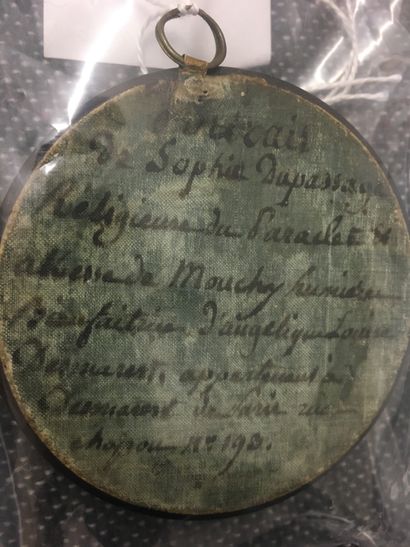 Portrait
De Sophie Dupassage
Religieuse du Paraclet et
abesse de Mouchy humieres
Bienfaitrice D'angelique Louise
Desmarest, appartenant à
Desmarest de Paris rue
chapon N° 193.